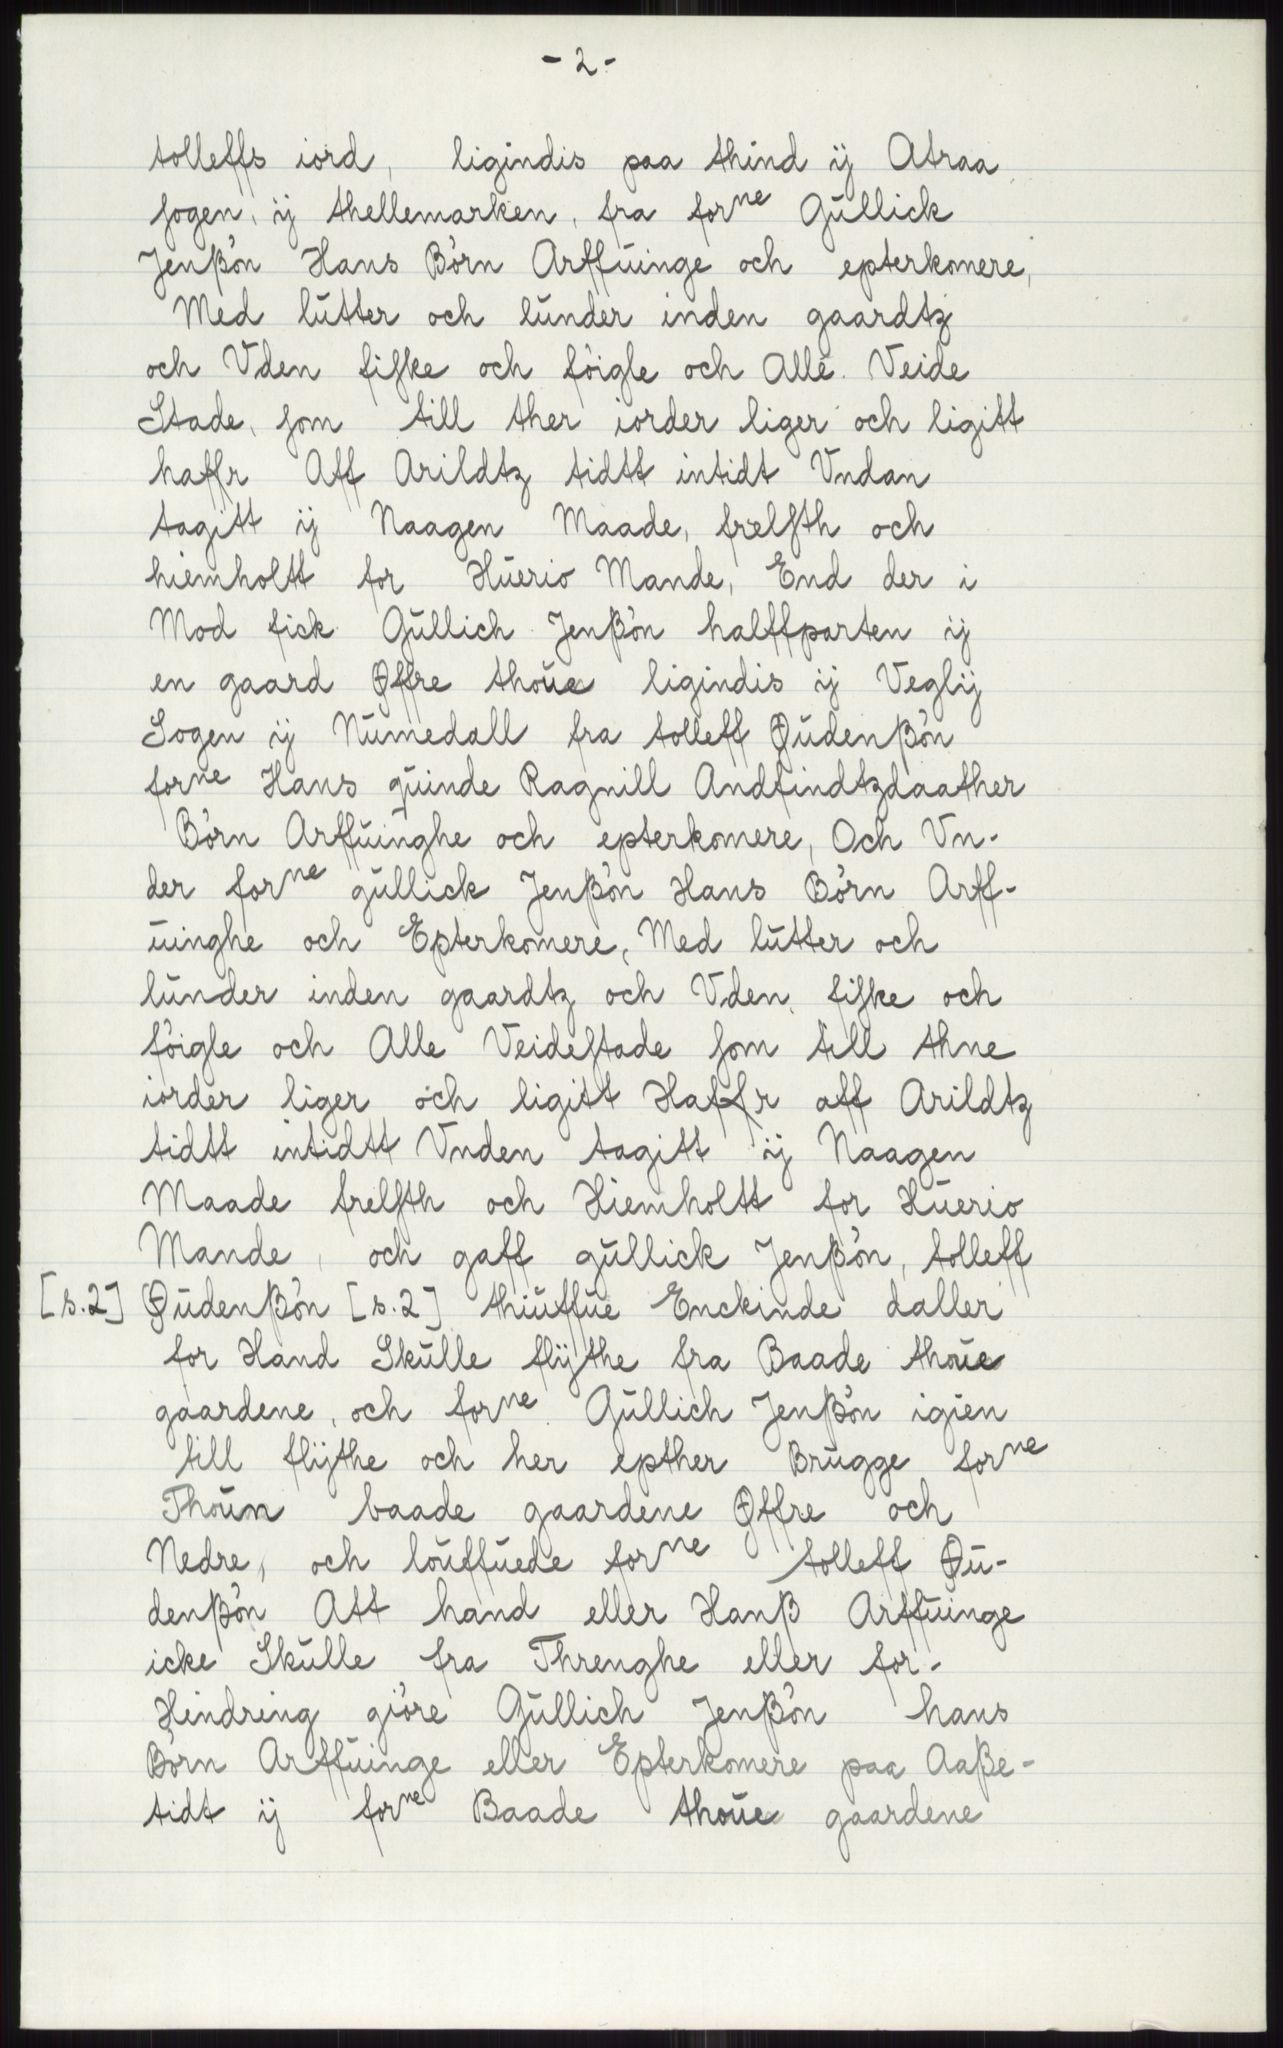 - 2 -
tolleffs iord, ligindis paa thind ij Atraa
sogen, ij thellemarken, fra forne Gŭllick
Jenßön Hans Börn Arffŭinge och epterkomere,
Med lŭtter och lŭnder inden gaardtz
och Vden fiske och föigle och Alle Veide
Stade, som till ther iorder liger och ligitt
haffr Aff Arildtz tidtt intidt Vndan
tagitt ij Naagen Maade, frelsth och
hiemholtt for Hŭerio Mande, End der i
Mod fick Gŭllich Jenßön halffparten ij
en gaard Øffre thoŭe ligindis ij Veglij
Sogen ij Nŭmedall fra tolleff Øŭdenßön
forne Hans qŭinde Ragnill Andfindtzdaather
Börn Arffŭinghe och epterkomere, Och Vn-
der forne gŭllick Jenßön Hans Börn Arff-
ŭinghe och Epterkomere, Med lŭtter och
lŭnder inden gaardtz och Vden, fiske och
föigle och Alle Veidestade som till thne
iorder liger och ligitt Haffr aff Arildtz
tidtt intidtt Vnden tagitt ij Naagen
Maade frelsth och Hiemholtt for Hŭerio
Mande, och gaff gŭllick Jenßön, tolleff
[s.2] Øŭdenßön [s.2] thiŭffŭe Enckinde daller
for Hand Skŭlle flÿthe fra Baade thoŭe
gaardene, och forne Gŭllich Jenßön igien
till flÿthe och her epther Brŭgge forne
Thoŭn baade gaardene Øffre och
Nedre, och loŭffŭede forne tolleff Øŭ-
denßön Att hand eller Hanß Arffŭinge
icke Skŭlle fra Threnghe eller for-
Hindring giöre Gŭllich Jenßön hans
Börn Arffŭinge eller Epterkomere paa Aaße-
tidt ij forne Baade thoŭe gaardene